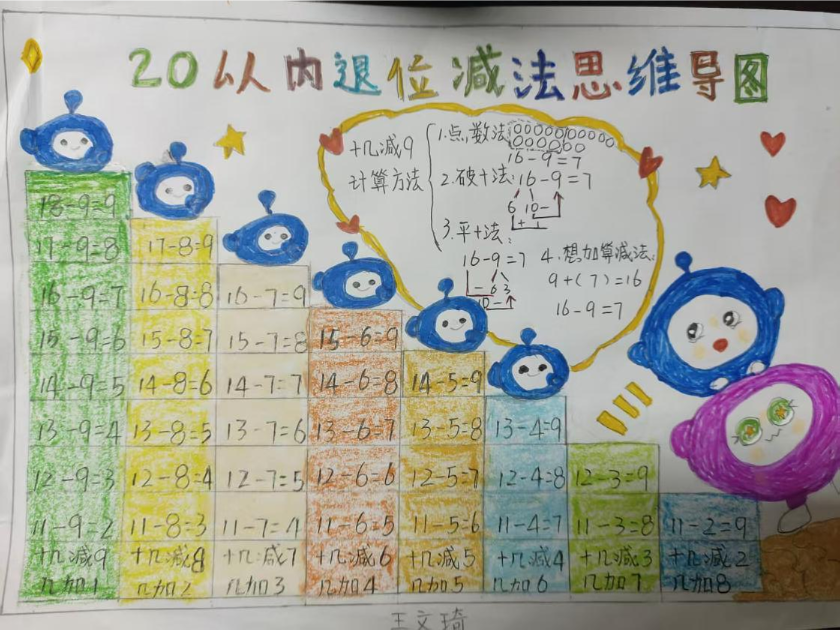 20以内退位减法思维导图
十几减9
计算方法
1.点数法
16-9=7
2.破十法:16-9=7
6 10-
3.平十法:
16-9=7
- 6 3
10-
4.想加算减法:
9+(7)=16
16-9=7
18-9=9
17-9=8 17-8=9
16-9=7 16-8=8 16-7=9
15-9=6 15-8=7 15-7=8 15-6=9
14-9=5 14-8=6 14-7=7 14-6=8 14-5=9
13-9=4 13-8=5 13-7=6 13-6=7 13-5=8 13-4=9
12-9=3 12-8=4 12-7=5 12-6=6 12-5=7 12-4=8 12-3=9
11-9=2 11-8=3 11-7=4 11-6=5 11-5=6 11-4=7 11-3=8 11-2=9
十几减9 十几减8 十几减7 十几减6 十几减5 十几减4 十几减3 十几减2
几加1 几加2 几加3 几加4 几加5 几加6 几加7 几加8
王文琦